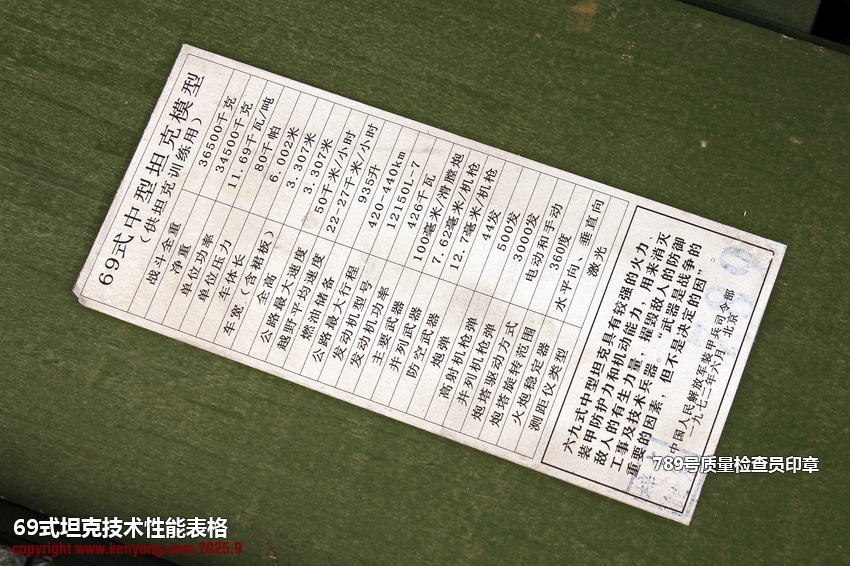 69式中型坦克模型
（供坦克训练用）
战斗全重 36500千克
净重 34500千克
单位功率 11.69千瓦/吨
单位压力 80千帕
车体长 6.002米
车宽（含裙板） 3.307米
全高 3.307米
公路最大速度 50千米/小时
越野平均速度 22-27千米/小时
燃油储备 935升
公路最大行程 420-440km
发动机型号 12150L-7
发动机功率 426千瓦
主要武器 100毫米/滑膛炮
并列武器 7.62毫米/机枪
防空武器 12.7毫米/机枪
炮弹 44发
高射机枪弹 500发
并列机枪弹 3000发
炮塔驱动方式 电动和手动
炮塔旋转范围 360度
火炮稳定器 水平向、垂直向
测距仪类型 激光
六九式中型坦克具有较强的火力、
装甲防护力和机动能力，用来消灭
敌人的有生力量，摧毁敌人的防御
工事及技术兵器。“武器是战争的
重要的因素，但不是决定的因”。
中国人民解放军装甲兵司令部
一九七二年六月 北京
789号质量检查员印章
69式坦克技术性能表格
copyright www.kenyung.com.2025.9